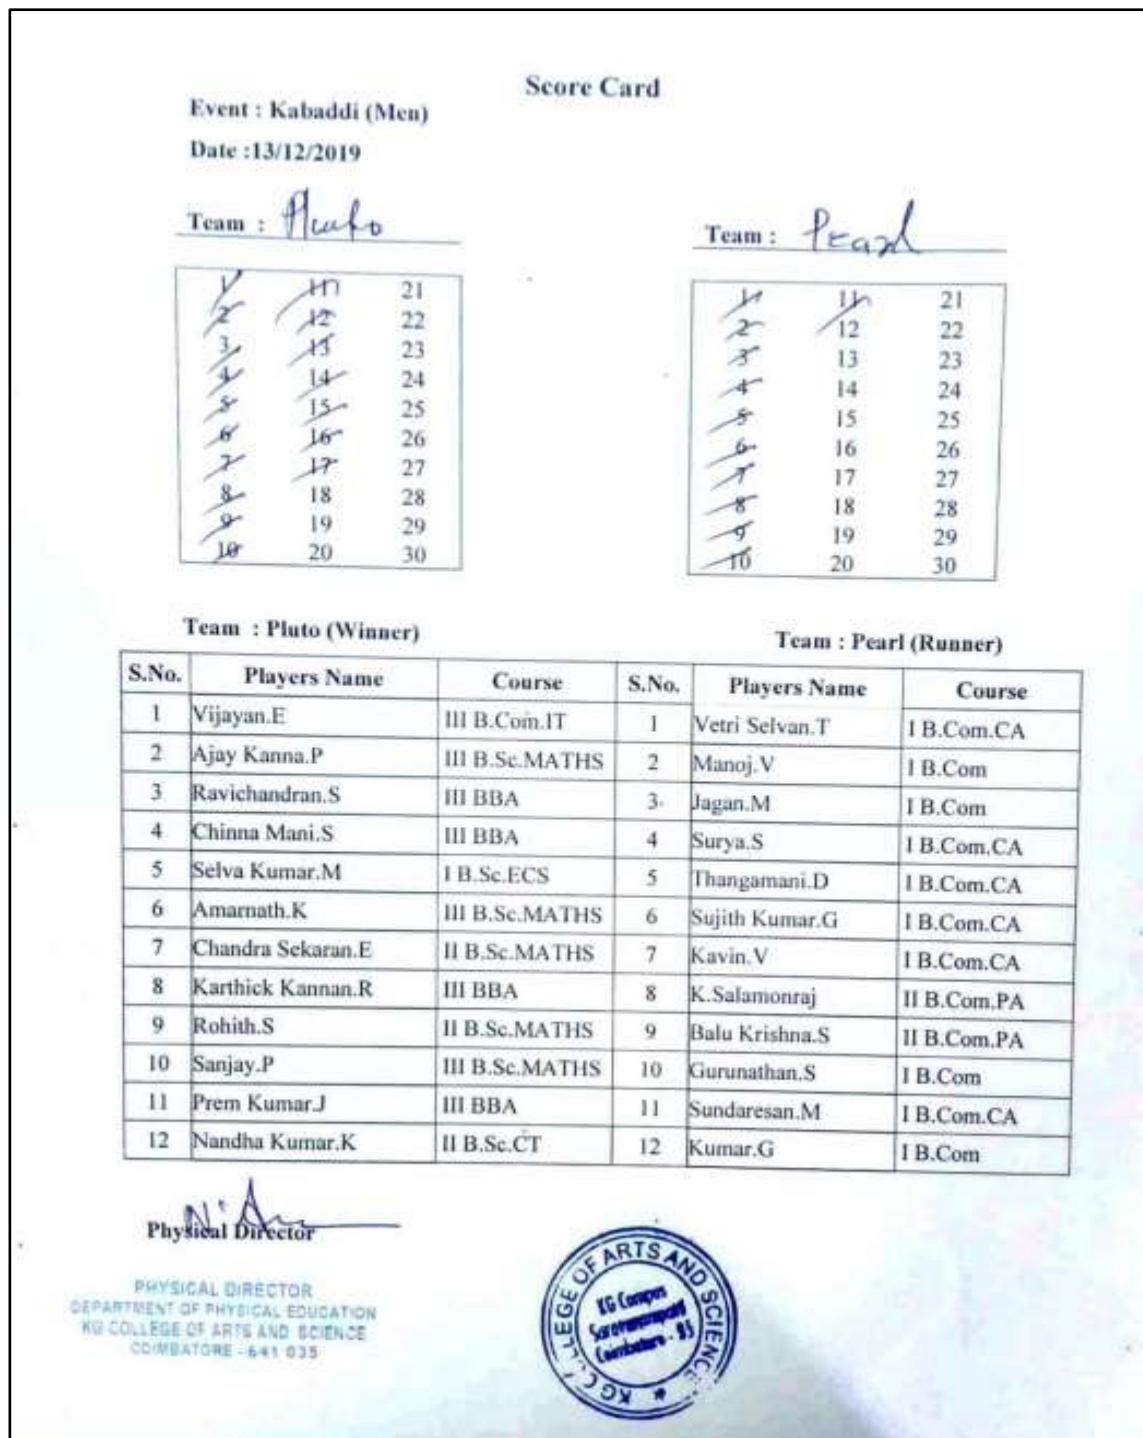 Score Card
Event : Kabaddi (Men)
Date :13/12/2019
Team : Pluto
Team : Pearl
1 11 21
2 12 22
3 13 23
4 14 24
5 15 25
6 16 26
7 17 27
8 18 28
9 19 29
10 20 30
1 11 21
2 12 22
3 13 23
4 14 24
5 15 25
6 16 26
7 17 27
8 18 28
9 19 29
10 20 30
Team : Pluto (Winner)
Team : Pearl (Runner)
S.No. Players Name Course S.No. Players Name Course
1 Vijayan.E III B.Com.IT 1 Vetri Selvan.T I B.Com.CA
2 Ajay Kanna.P III B.Sc.MATHS 2 Manoj.V I B.Com
3 Ravichandran.S III BBA 3 Jagan.M I B.Com
4 Chinna Mani.S III BBA 4 Surya.S I B.Com.CA
5 Selva Kumar.M I B.Sc.ECS 5 Thangamani.D I B.Com.CA
6 Amarnath.K III B.Sc.MATHS 6 Sujith Kumar.G I B.Com.CA
7 Chandra Sekaran.E II B.Sc.MATHS 7 Kavin.V I B.Com.CA
8 Karthick Kannan.R III BBA 8 K.Salamonraj II B.Com.PA
9 Rohith.S II B.Sc.MATHS 9 Balu Krishna.S II B.Com.PA
10 Sanjay.P III B.Sc.MATHS 10 Gurunathan.S I B.Com
11 Prem Kumar.J III BBA 11 Sundaresan.M I B.Com.CA
12 Nandha Kumar.K II B.Sc.CT 12 Kumar.G I B.Com
Physical Director
PHYSICAL DIRECTOR
DEPARTMENT OF PHYSICAL EDUCATION
KG COLLEGE OF ARTS AND SCIENCE
COIMBATORE - 641 035
KG COLLEGE OF ARTS AND SCIENCE
KG Campus
Saravanampatti
Coimbatore - 35